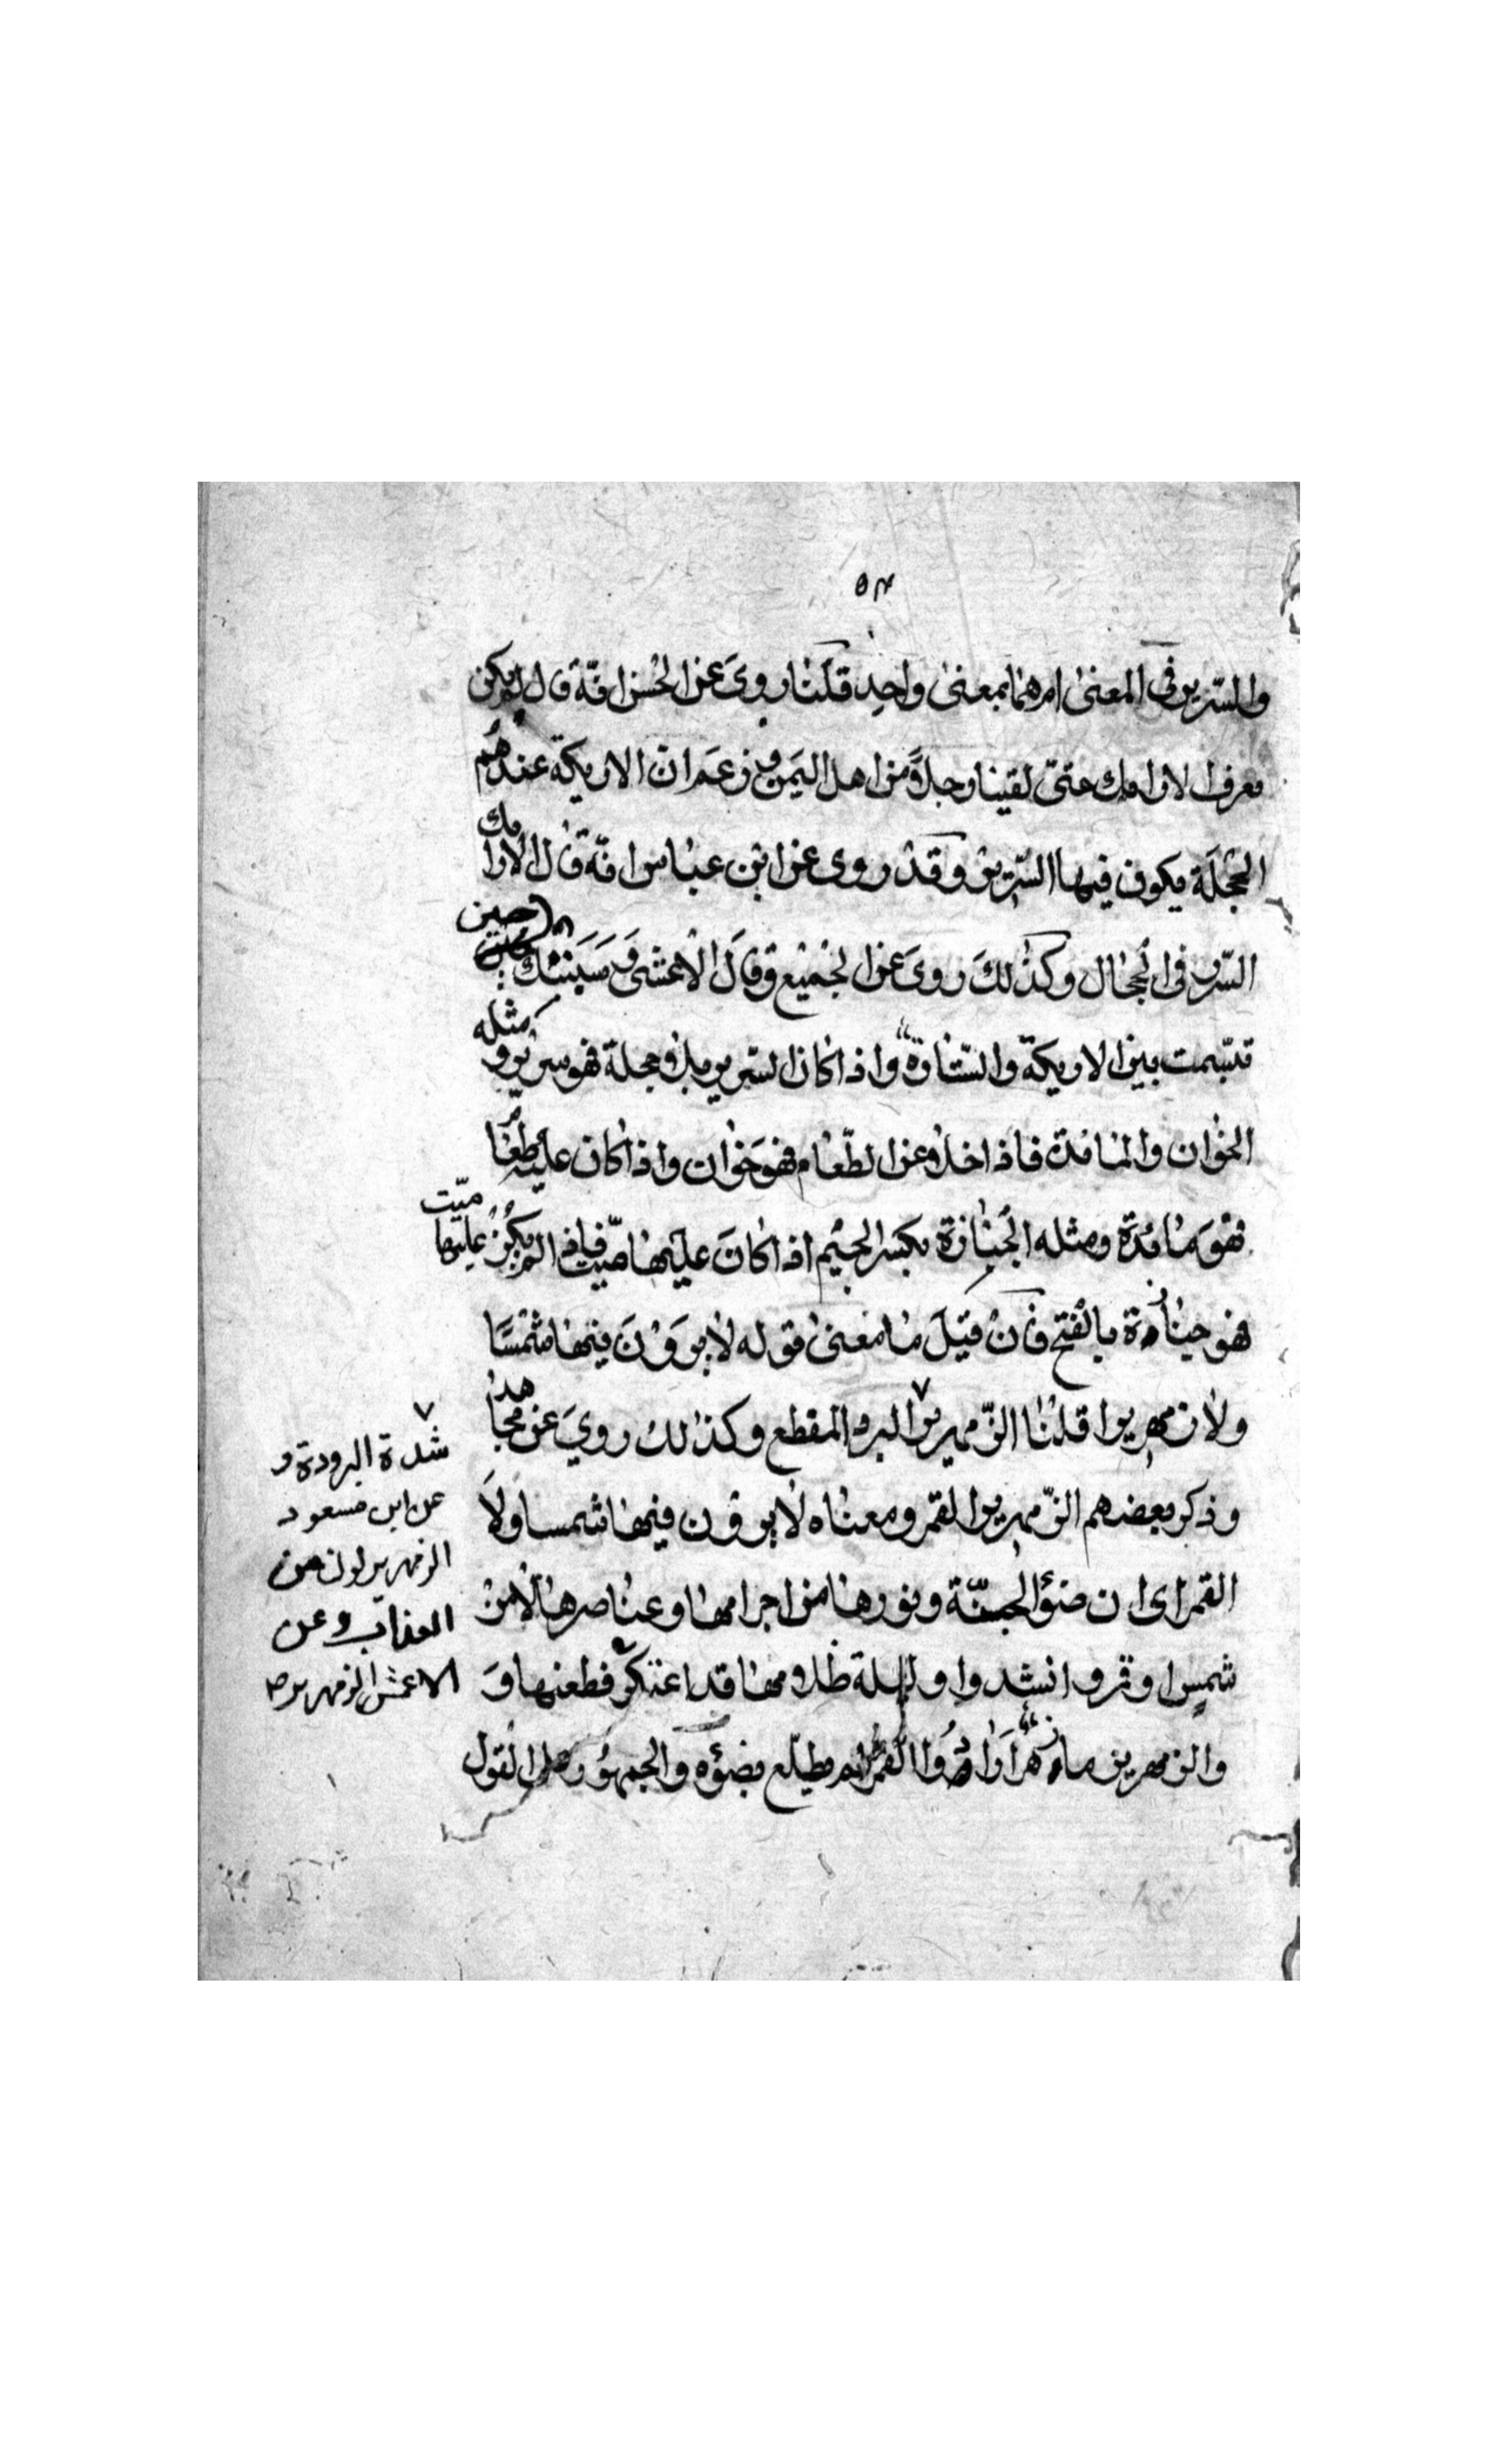 ٥٣
والسّرير في المعنى ام هما بمعنى واحد قلنا روي عن الحسن انّه قال لم يكن
معرف الاوايك حتىّ لقينا رجلاً من اهل اليمن وزعم ان الاريكة عندهم
الحجلة يكون فيها السّرير وقد روى عن ابن عباس انّه قال الارايك
السّرر في الحجال وكذلك روى عن الجميع وقال الاعشى وسبتك حين
تبسّمت بين الاريكة والسّتارة واذا كان السّرير بلا حجلة فهو سرير و مثله
الخوان والمائدة فاذا خلا عن الطّعام فهو خوان واذا كان عليه طعام
فهو مائدة ومثله الجنازة بكسر الجيم اذا كان عليها ميّت فاذا لم يكن عليها ميّت
فهو جنازة بالفتح فان قيل ما معنى قوله لا يرون فيها شمسًا
ولا زمهريرا قلنا الزّمهرير البرد المقطع وكذلك روي عن مجاهد
وذكر بعضهم الزّمهرير القمر ومعناه لا يرون فيها شمسا ولا
القمر اى ان ضوء الجنّة ونورها من اجرامها وعناصرها لا من
شمس وقمر وانشدوا وليلة ظلامها قد اعتكر قطعتها و
والزمهرير ما زهر ارادوا القمر لم يطلع بضوئه والجمهور على القول
شدة البرودة و
عن ابن مسعود
الزمهرير لون من
العذاب وعن
الاعمش الزمهرير